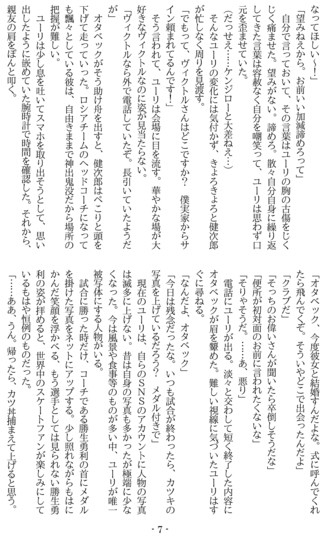 なってほしい！」
「望みねえから。お前いい加減諦めろって」
　自分で言っておいて、その言葉はユーリの胸の古傷をじく
じく痛ませた。望みがない。諦めろ。散々自分自身に繰り返
してきた言葉は容赦なく自分を嘲笑って、ユーリは思わず口
元を歪ませていた。
（だっせえ…ケンジローと大差ねぇ…）
　そんなユーリの変化には気付かず、きょろきょろと健次郎
が忙しなく周りを見渡す。
「でもって、ヴィクトルさんはどこですか？　僕実家からサ
イン頼まれてるんです！」
　そう言われて、ユーリは会場に目を流す。華やかな場が大
好きなヴィクトルなのに姿が見当たらない。
「ヴィクトルなら外で電話していたぞ。長引いていたようだ
が」
　オタベックがそう助け舟を出すと、健次郎はぺこりと頭を
下げて走っていった。ロシアチームのヘッドコーチになって
も飄々としている彼は、自由きままで神出鬼没だから場所の
把握が難しい。
　ユーリは少し息を吐いてスマホを取り出そうとして、思い
出したように嵌めていた腕時計で時間を確認した。それから、
親友の肩をぽんと叩く。
「オタベック、今度彼女と結婚すんだよな。式に呼んでくれ
たら飛んでくぞ。そういやどこで出会ったんだよ」
「クラブだ」
「そっちのお偉いさんが聞いたら卒倒しそうだな」
「便所が初対面のお前に言われたくないな」
「そりゃそうだ。……あ、悪り」
　電話にユーリが出る。淡々と交わして短く終了した内容に
オタベックが眉を顰めた。難しい視線に気づいたユーリはす
ぐに尋ねる。
「なんだよ、オタベック」
「今日は残念だったな。いつも試合が終わったら、カツキの
写真を上げているだろう？　メダル付きで」
　現在のユーリは、自らのＳＮＳのアカウントに人物の写真
は滅多に上げない。昔は自身の写真も多かったが極端に少な
くなった。今は風景や食事等のものが多い中、ユーリが唯一
被写体にする人物がいる。
　試合に勝った時だけ、コーチである勝生勇利の首にメダル
を掛けた写真をネットにアップする。少し照れながらもはに
かんだ笑顔を浮かべる、もう選手としては見られない勝生勇
利の姿が拝めると、世界中のスケートファンが楽しみにして
いるもはや恒例のものだった。
「……ああ、うん。帰ったら、カツ丼捕まえて上げると思う。
- 7 -